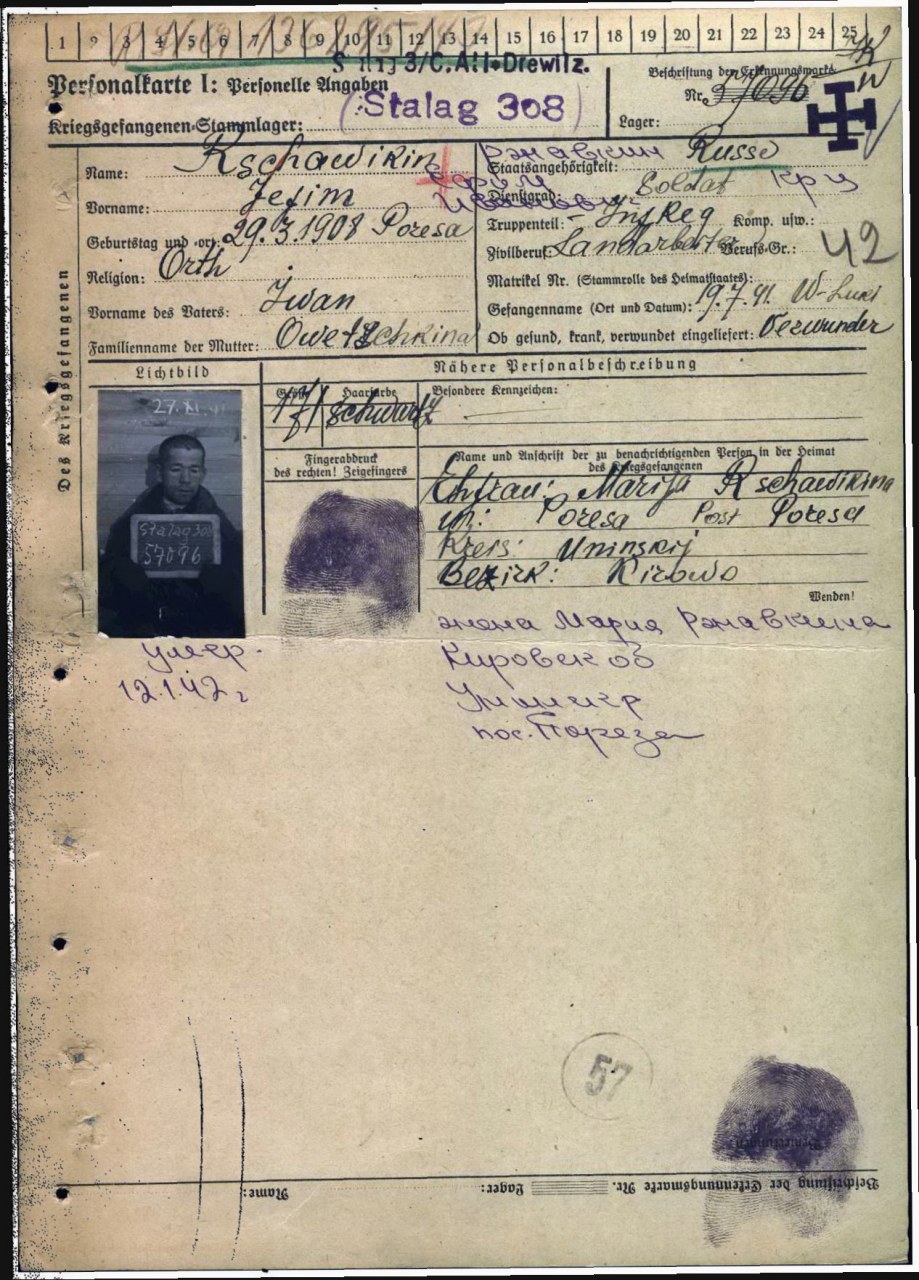 1 2 3 4 5 6 7 8 9 10 11 12 13 14 15 16 17 18 19 20 21 22 23 24 25
3/C. Drewitz.
Personalkarte I: Personelle Angaben
Beschriftung der Erkennungsmarke
(Stalag 308)
Nr. 57096
Kriegsgefangenen-Stammlager:
Lager:
Des Kriegsgefangenen
Name: Rschawikin
Ржавкин
Staatsangehörigkeit: Russe
Ефим
Vorname: Jefim
Dienstgrad: Soldat
Иванович
Geburtstag und -ort: 29.3.1908 Poresa
Truppenteil: Inf Reg Komp. usw.:
Religion: Orth
Zivilberuf: Landarbeiter Berufs-Gr.: 42
Vorname des Vaters: Iwan
Matrikel Nr. (Stammrolle des Heimatstaates):
Gefangenname (Ort und Datum): 19.7.41. W-Luki
Familienname der Mutter: Owetschkina
Ob gesund, krank, verwundet eingeliefert: Verwundet
Lichtbild
Nähere Personalbeschreibung
27.XI.41
Größe
171
Haarfarbe
schwarz
Besondere Kennzeichen:
Fingerabdruck
des rechten! Zeigefingers
Name und Anschrift der zu benachrichtigenden Person in der Heimat
des Kriegsgefangenen
Stalag 308
57096
Ehfrau: Marija Rschawikina
Poresa Post Poresa
Kreis: Uninskij
Bezirk: Kirowo
Wenden!
жена Мария Ржавкина
умер.
12.1.42 г
Кировск об
пос. Пореза
57
Bemerkungen
Beschriftung der Erkennungsmarke Nr.
Lager:
Name: